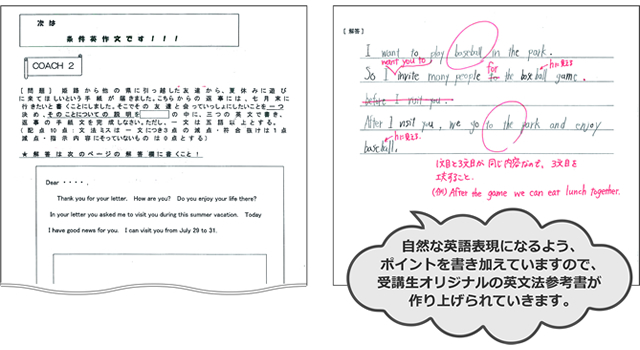 次は
条件英作文です！！！
COACH 2
【問題】姫路から他の県に引っ越した友達から、夏休みに遊び
に来てほしいという手紙が届きました。こちらからの返事には、七月末に
行きたいと書くことにしました。そこでその友達と会っていっしょにしたいことを一つ
決め、そのことについての説明を の中に、三つの英文で書き、
返事の手紙文を完成しなさい。ただし、一文は五語以上とする。
（配点10点：文法ミスは一文につき3点の減点・符合抜けは1点
減点・指示内容にそっていないものは0点とする）
★解答は次のページの解答欄に書くこと！
Dear ・・・・,
Thank you for your letter. How are you? Do you enjoy your life there?
In your letter you asked me to visit you during this summer vacation. Today
I have good news for you. I can visit you from July 29 to 31.
【解答】
I want to play baseball in the park.
want you to
So I invite many people for to the baseball game.
hに見える
before I visit you.
After I visit you, we go to the park and enjoy
baseball.
hに見える
1文目と3文目が同じ内容なので、3文目を
工夫すること。
(例) After the game we can eat lunch together.
自然な英語表現になるよう、
ポイントを書き加えていますので、
受講生オリジナルの英文法参考書が
作り上げられていきます。